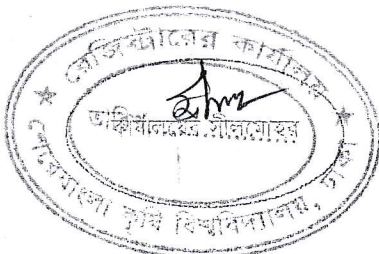 রেজিস্ট্রারের কার্যালয়
কার্যালয়ের সীলমোহর
শেরেবাংলা কৃষি বিশ্ববিদ্যালয়, ঢাকা